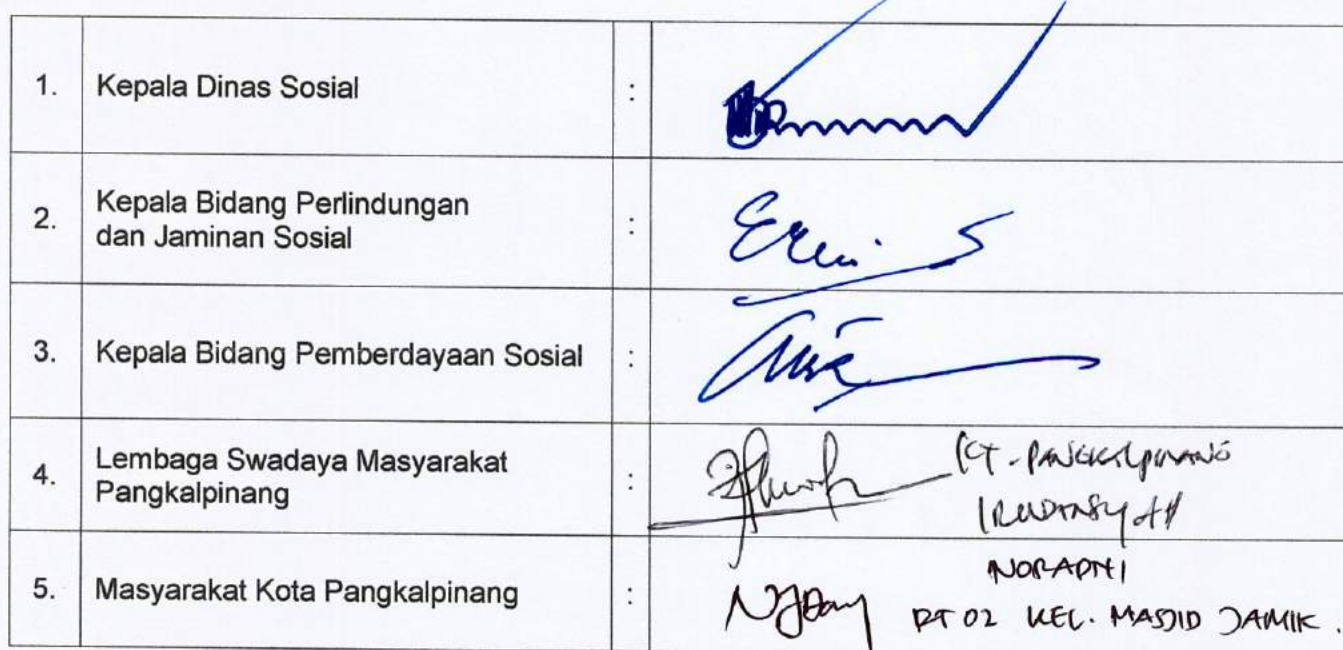 1. Kepala Dinas Sosial :
2. Kepala Bidang Perlindungan
dan Jaminan Sosial :
3. Kepala Bidang Pemberdayaan Sosial :
4. Lembaga Swadaya Masyarakat
Pangkalpinang :
KT - PANGKALPINANG
5. Masyarakat Kota Pangkalpinang :
RT 02 KEL. MASJID JAMIK.